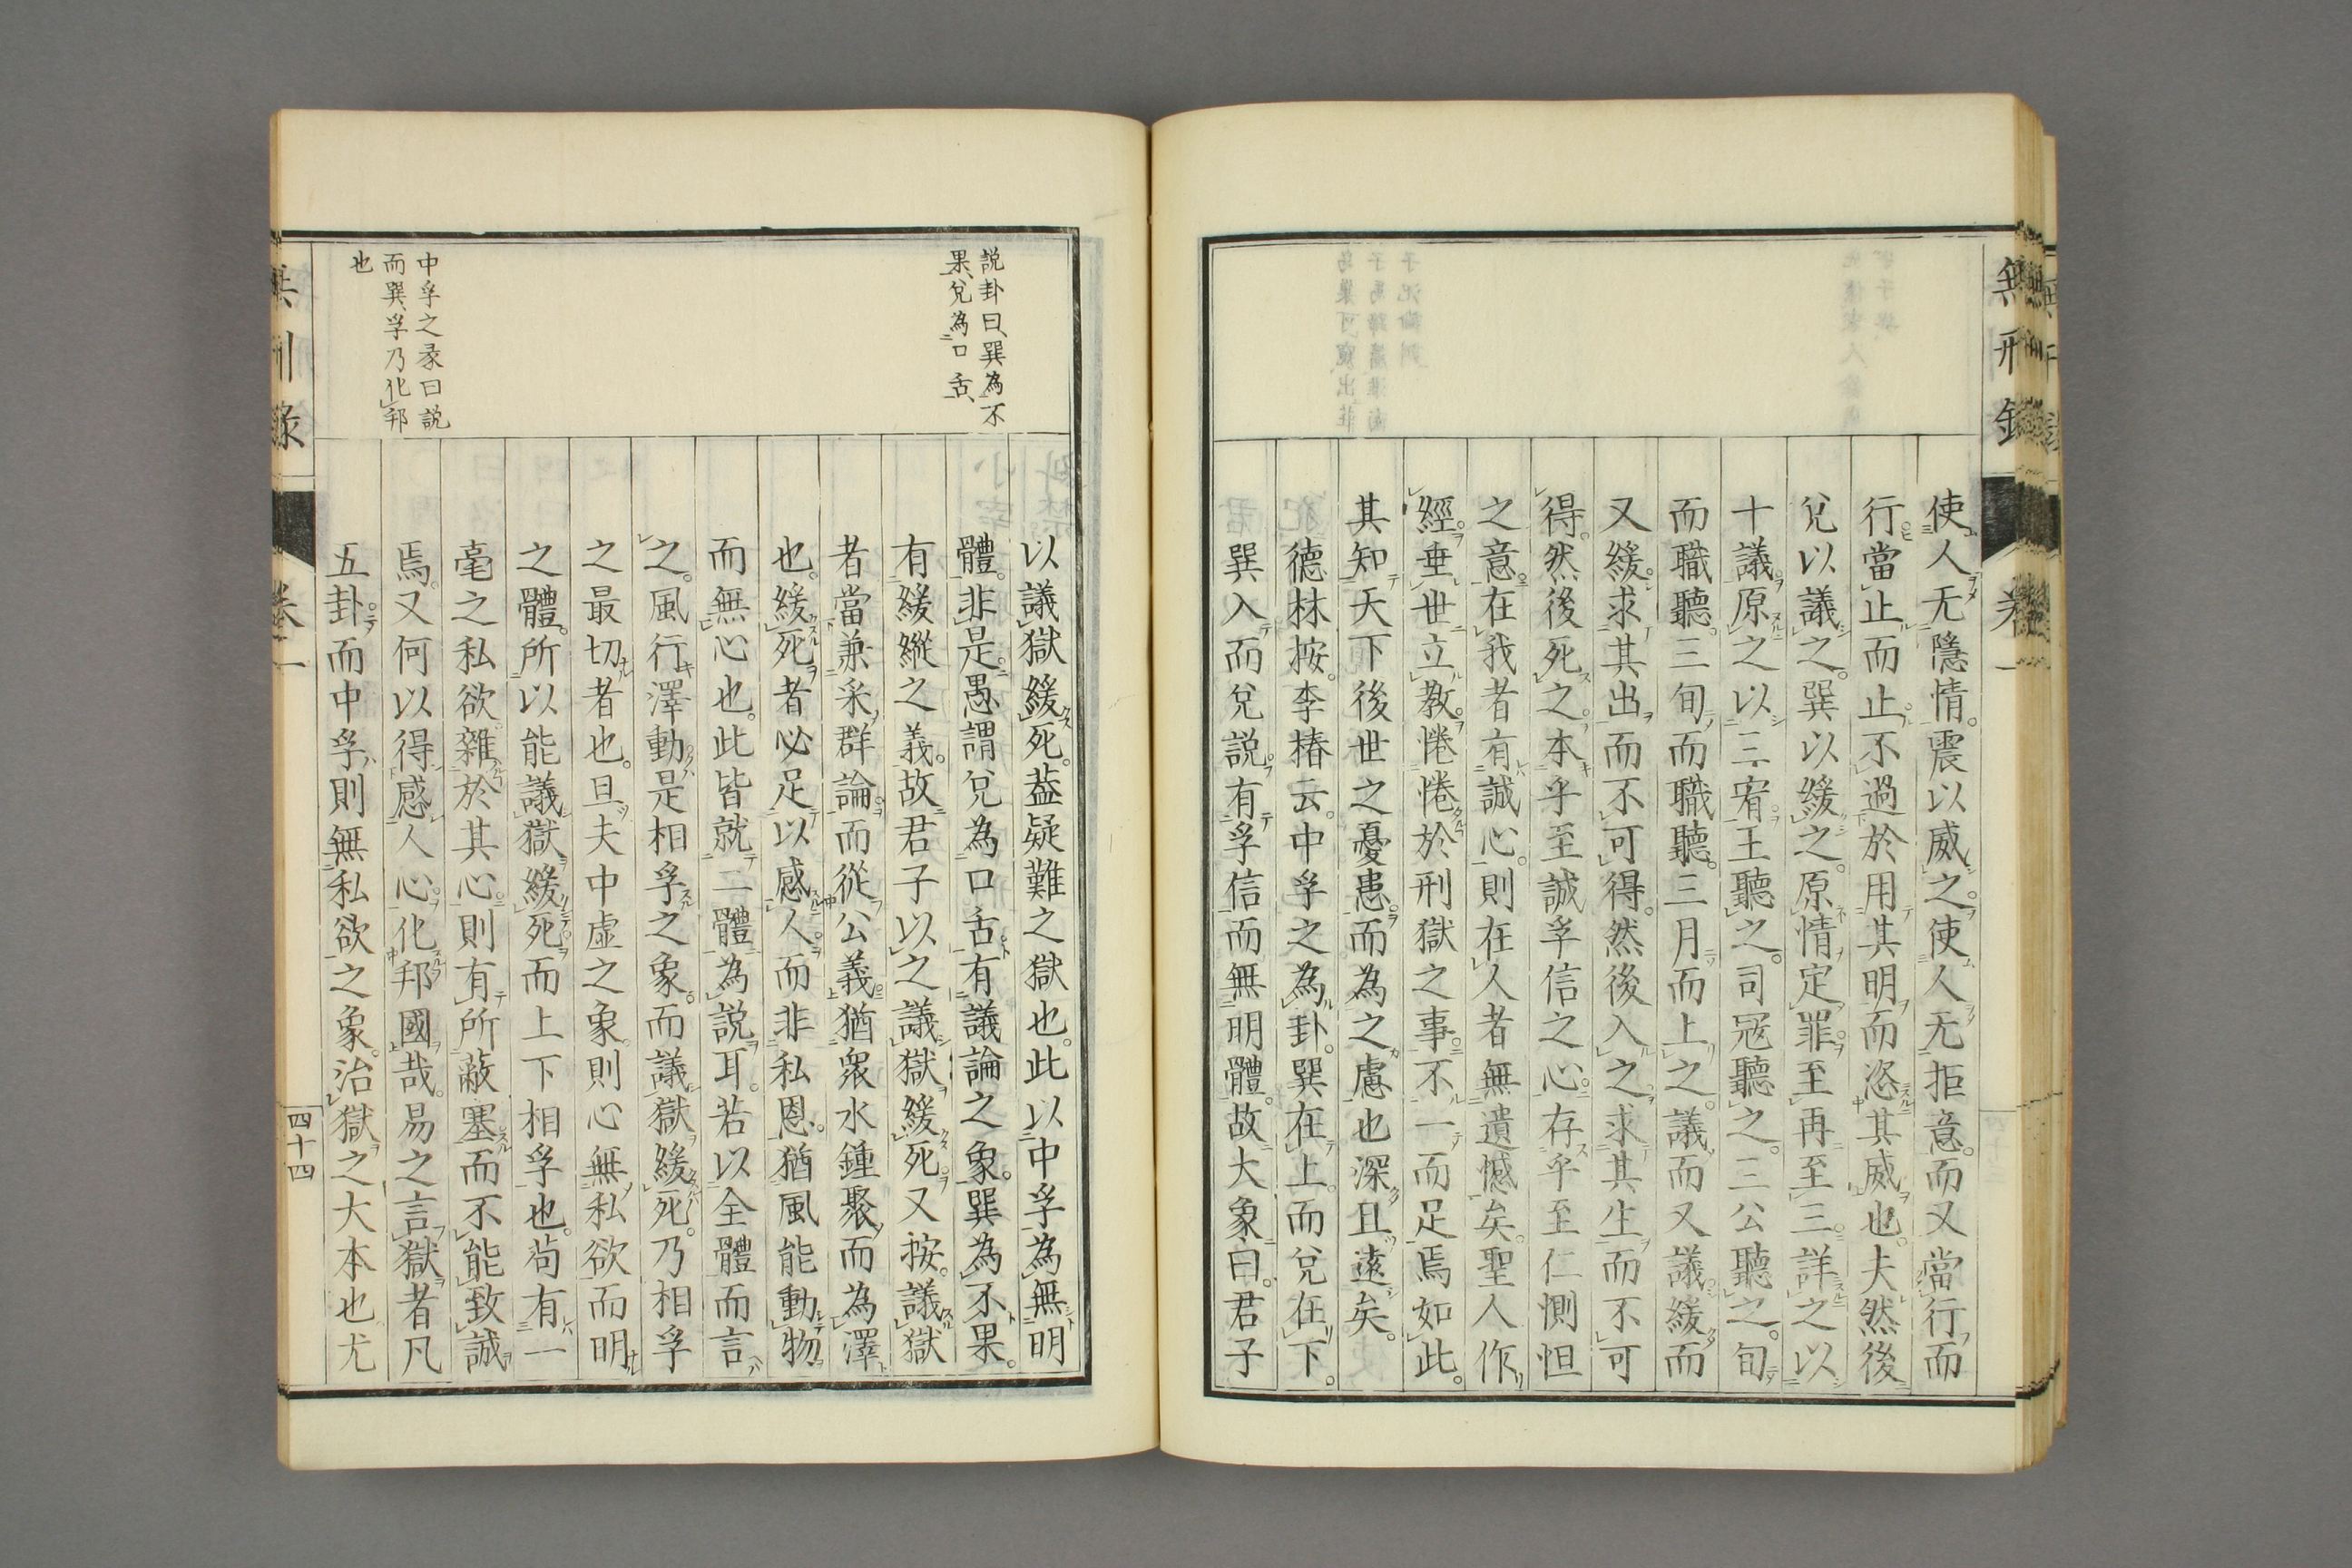 無刑錄
卷一
使人无隱情。震以威之。使人无拒意。而又當行而
行。當止而止。不過於用其明而恣其威也。夫然後
兌以議之。巽以緩之。原情定罪。至再至三。詳之以
十議。原之以三宥。王聽之。司寇聽之。三公聽之。旬
而職聽。三旬而職聽。三月而上之。議而又議。緩而
又緩。求其出而不可得。然後入之。求其生而不可
得。然後死之。本乎至誠孚信之心。存乎至仁惻怛
之意。在我者有誠心。則在人者無遺憾矣。聖人作
經。垂世立教。惓惓於刑獄之事。不一而足焉如此。
其知天下後世之憂患。而為之慮也深且遠矣。
德林按。李椿云。中孚之為卦。巽在上。而兌在下。
巽入而兌說。有孚信而無明體。故大象曰。君子
說卦曰、巽為不
果、兌為口舌、
以議獄緩死。蓋疑難之獄也。此以中孚為無明
體。非是。愚謂兌為口舌。有議論之象。巽為不果。
有緩縱之義。故君子以之議獄緩死。又按。議獄
者當兼采群論。而從公義。猶衆水鍾聚而為澤
也。緩死者必足以感人。而非私恩。猶風能動物
而無心也。此皆就二體為說耳。若以全體而言
之。風行澤動。是相孚之象。而議獄緩死。乃相孚
之最切者也。且夫中虛之象。則心無私欲而明
之體。所以能議獄緩死。而上下相孚也。苟有一
毫之私欲。雜於其心。則有所蔽塞。而不能致誠
焉。又何以得感人心。化邦國哉。易之言獄者凡
五卦。而中孚則無私欲之象。治獄之大本也。尤
中孚之彖曰說
而巽孚乃化邦
也
無刑錄
卷一
四十四